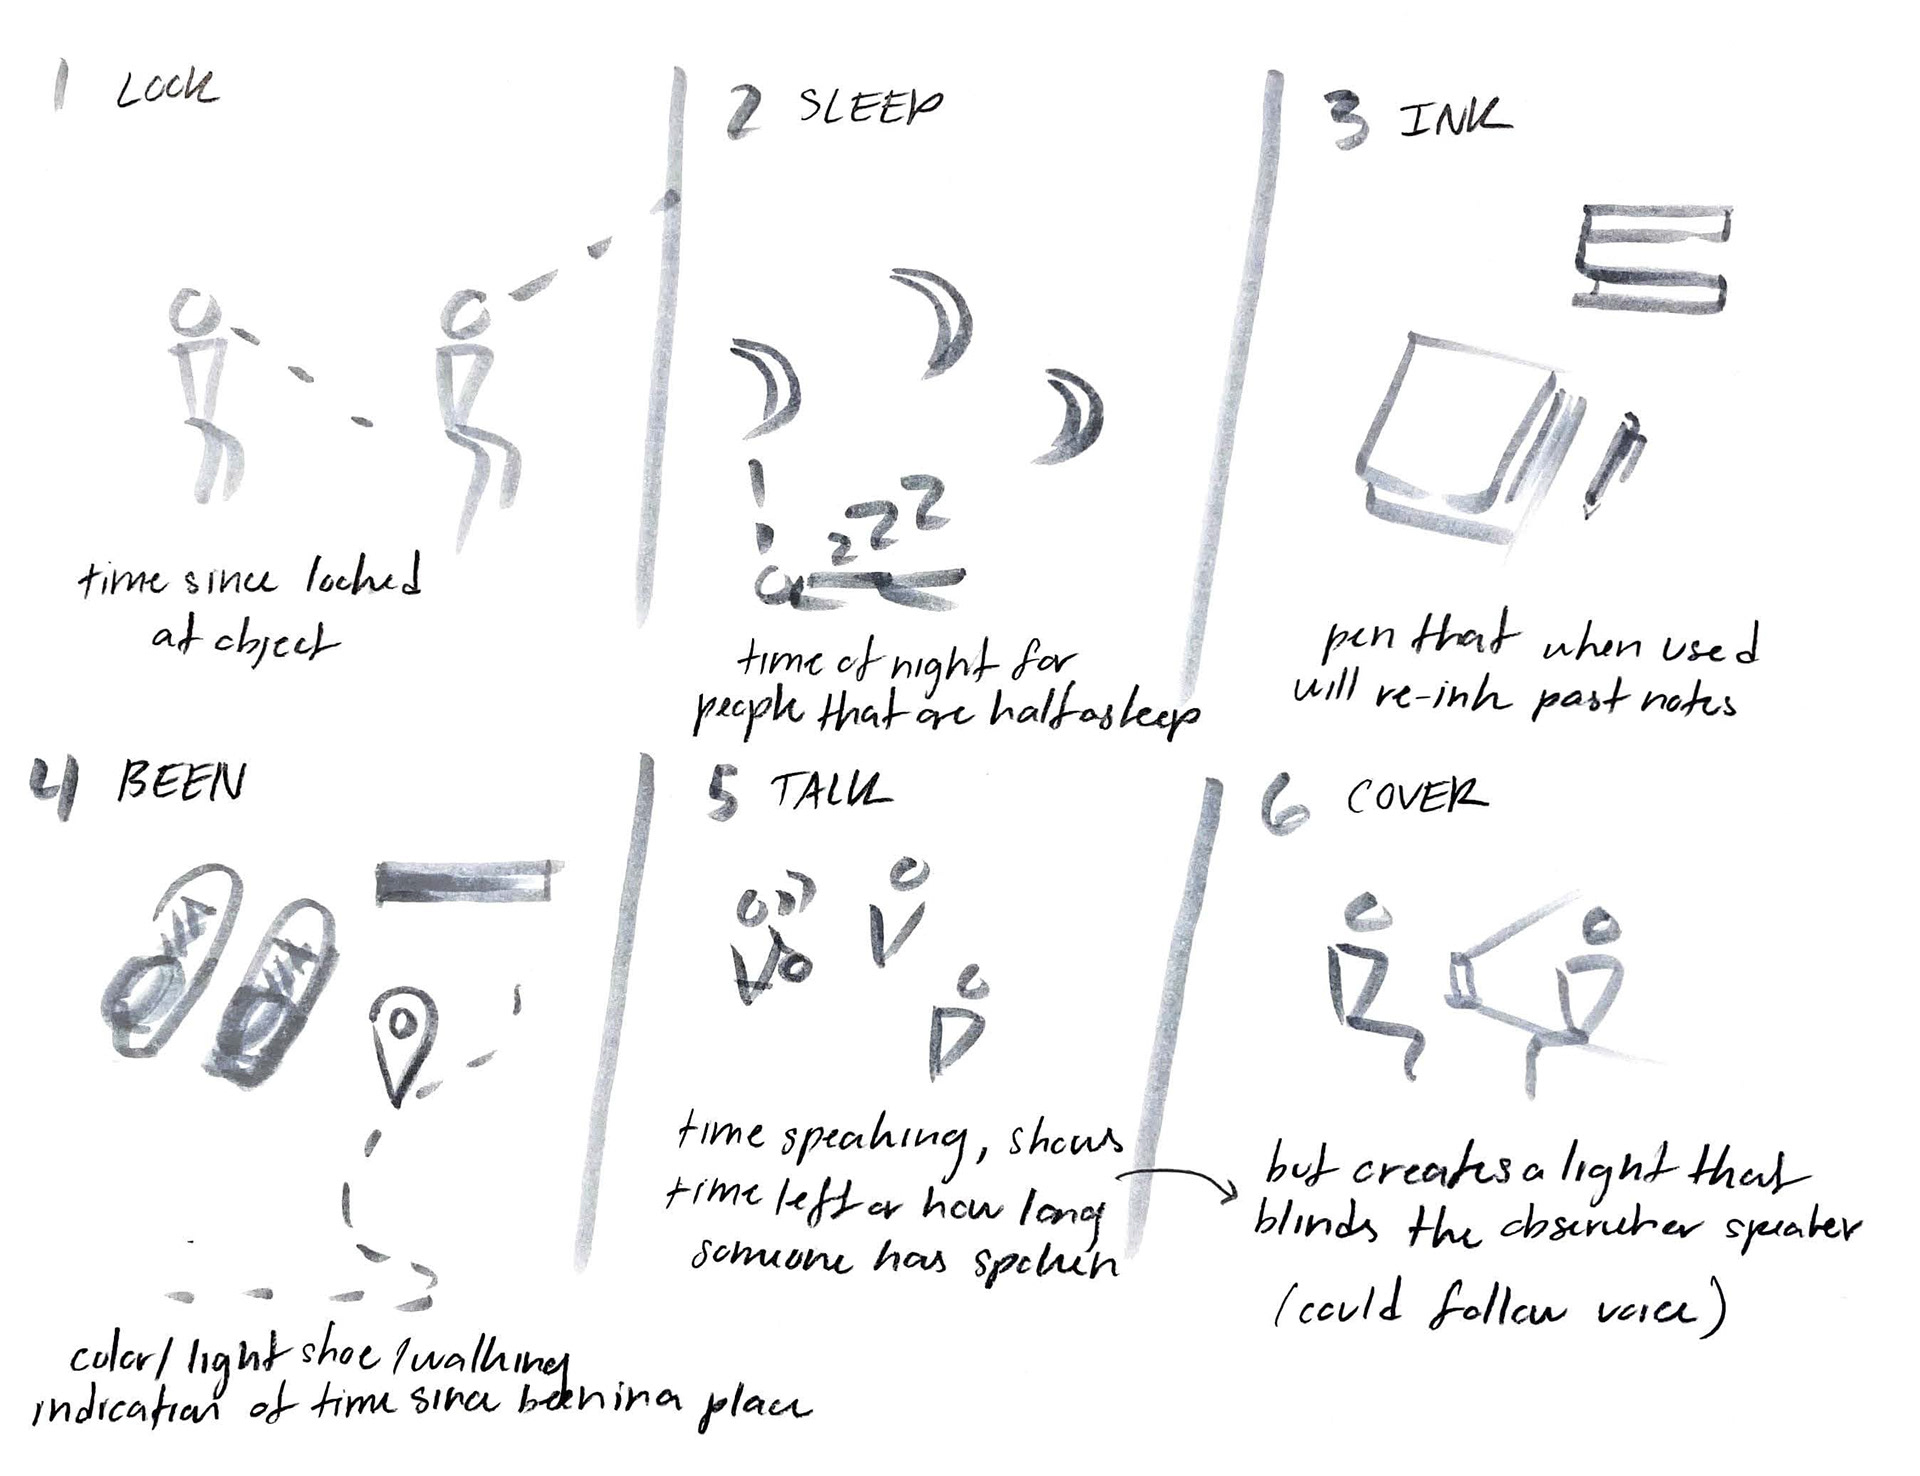 1 LOOK
time since looked
at object
2 SLEEP
z z z
time of night for
people that are half asleep
3 INK
pen that when used
will re-ink past notes
4 BEEN
color/light shoe/walking
indication of time since been in a place
5 TALK
time speaking, shows
time left or how long
someone has spoken
6 COVER
but creates a light that
blinds the speaker
(could follow voice)